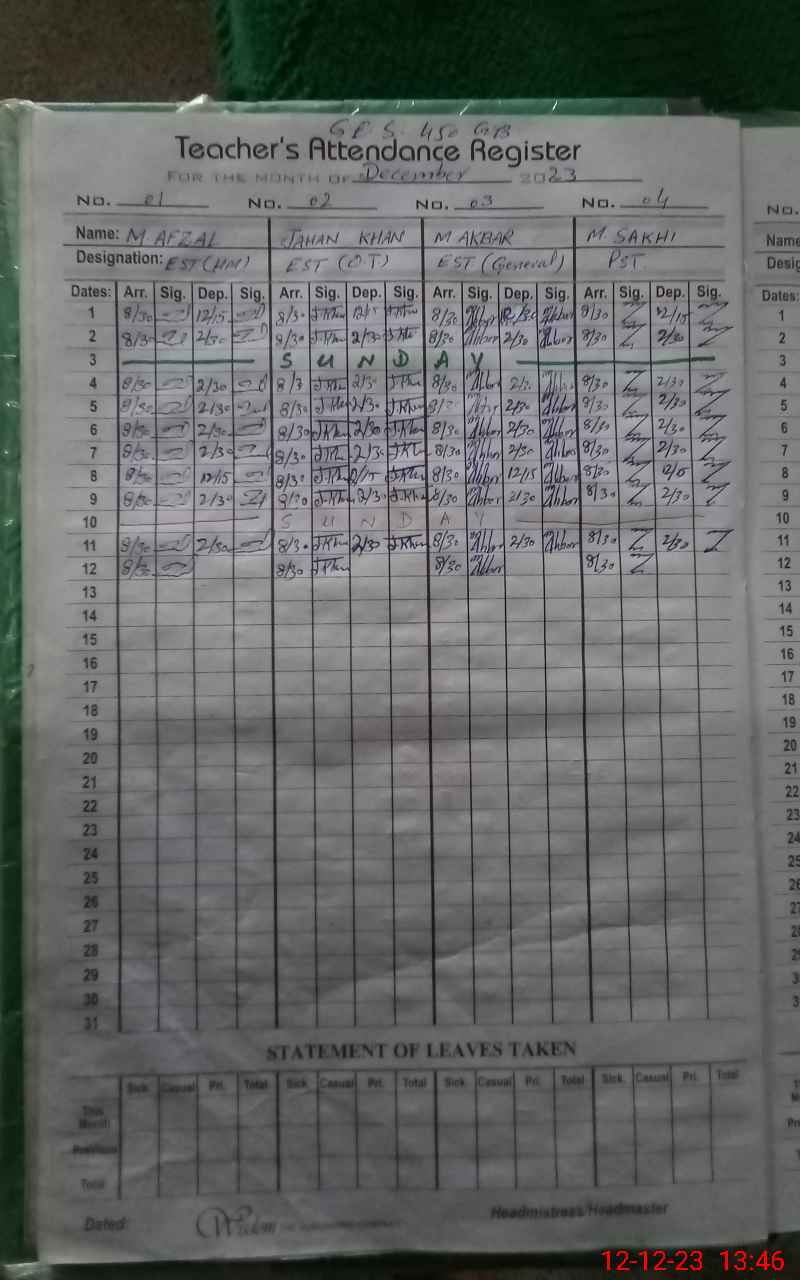 G.P.S. 450 GB
Teacher's Attendance Register
FOR THE MONTH OF December 2023
No. 01 No. 02 No. 03 No. 04 No.
Name: M. AFZAL JAHAN KHAN M AKBAR M. SAKHI Name
Designation: EST (HM) EST (O.T) EST (General) PST.
Dates: Arr. Sig. Dep. Sig. Arr. Sig. Dep. Sig. Arr. Sig. Dep. Sig. Arr. Sig. Dep. Sig. Dates:
1 8/30 12/15 8/30 J.Khan 12/15 J.Khan 8/30 Akbar 12/30 Akbar 8/30 12/15 1
2 8/30 2/30 8/30 J.Khan 2/30 J.Khan 8/30 Akbar 2/30 Akbar 8/30 2/30 2
3 SUNDAY 3
4 8/30 2/30 8/3 J.Khan 2/30 J.Khan 8/30 Akbar 2/30 Akbar 8/30 2/30 4
5 8/30 2/30 8/30 J.Khan 2/30 J.Khan 8/30 Akbar 2/30 Akbar 8/30 2/30 5
6 8/30 2/30 8/30 J.Khan 2/30 J.Khan 8/30 Akbar 2/30 Akbar 8/30 2/30 6
7 8/30 2/30 8/30 J.Khan 2/30 J.Khan 8/30 Akbar 2/30 Akbar 8/30 2/30 7
8 8/30 12/15 8/30 J.Khan 12/15 J.Khan 8/30 Akbar 12/15 Akbar 8/30 8
9 8/30 2/30 8/30 J.Khan 2/30 J.Khan 8/30 Akbar 2/30 Akbar 8/30 2/30 9
10 SUNDAY 10
11 8/30 2/30 8/30 J.Khan 2/30 J.Khan 8/30 Akbar 2/30 Akbar 8/30 2/30 11
12 8/30 8/30 J.Khan 8/30 Akbar 8/30 12
13 13
14 14
15 15
16 16
17 17
18 18
19 19
20 20
21 21
22 22
23 23
24 24
25 25
26 26
27
28
29
30
31
STATEMENT OF LEAVES TAKEN
Sick. Casual Pri. Total Sick. Casual Pri. Total Sick. Casual Pri. Total Sick. Casual Pri. Total
This Month
Previous
Total
Dated: Wisdom Headmistress/Headmaster
12-12-23 13:46